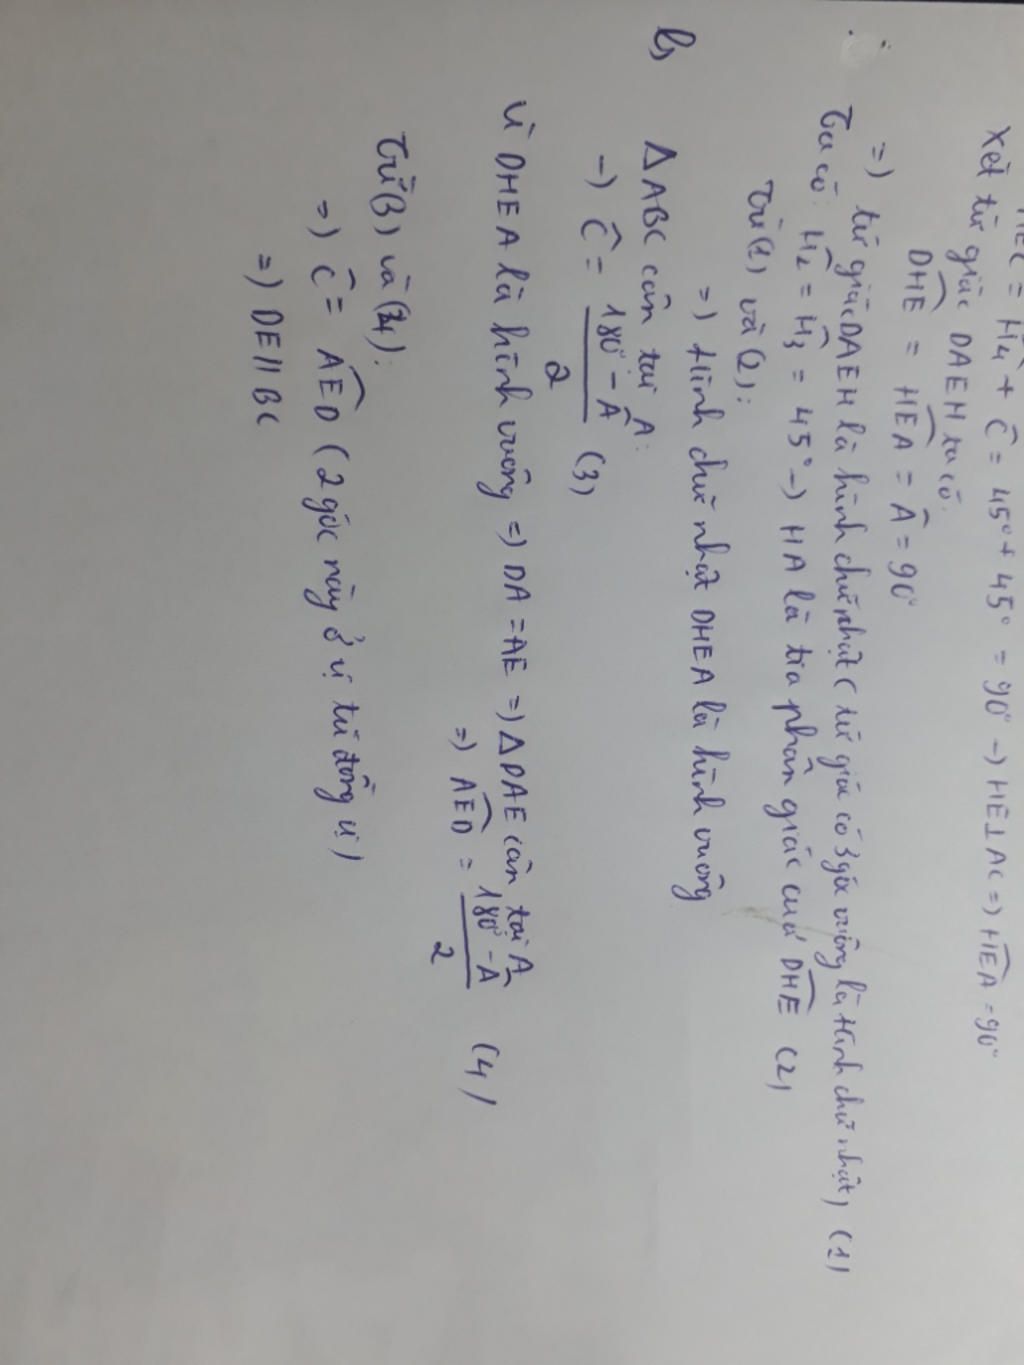 HEC = Ĥ₄ + Ĉ = 45° + 45° = 90° -) HE⊥AC =) HEA = 90°
Xét tứ giác DAEH ta có:
DHE = HEA = Â = 90°
=) tứ giác DAEH là hình chữ nhật (tứ giác có 3 góc vuông là hình chữ nhật) (1)
Ta có: Ĥ₂ = Ĥ₃ = 45° -) HA là tia phân giác của DHE (2)
Từ (1) và (2):
=) Hình chữ nhật DHEA là hình vuông
b)
ΔABC cân tại A:
-) Ĉ = (180° - Â)/2 (3)
Vì DHEA là hình vuông =) DA = AE =) ΔDAE cân tại A
=) AED = (180° - Â)/2 (4)
Từ (3) và (4):
=) Ĉ = AED (2 góc này ở vị trí đồng vị)
=) DE // BC